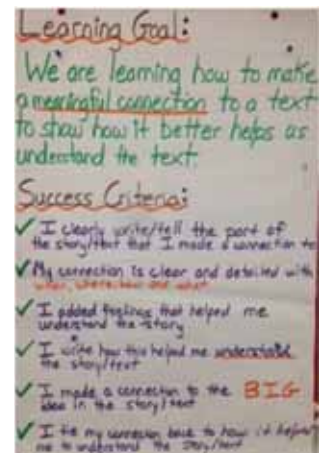 Learning Goal:
We are learning how to make
a meaningful connection to a text
to show how it better helps us
understand the text.
Success Criteria:
✓ I clearly write/tell the part of
the story/text that I made a connection to
✓ My connection is clear and detailed with
who, where, how and what
✓ I added feelings that helped me
understand the story
✓ I write how this helped me understand
the story/text
✓ I made a connection to the BIG
idea in the story/text
✓ I tie my connection back to how it helped
me to understand the story/text